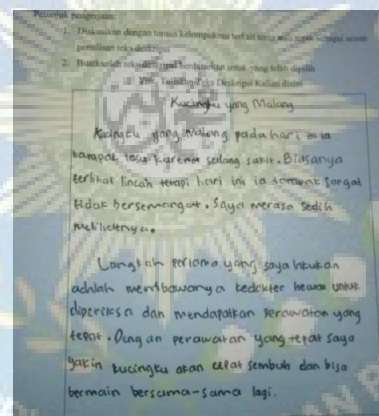 Petunjuk pengerjaan:
1. Diskusikan dengan teman kelompokmu terkait tema dan topik sebagai acuan
penulisan teks deskripsi
2. Buatkanlah teks deskripsi berdasarkan tema yang telah dipilih
Yuk, Tuliskan Teks Deskripsi Kalian disini
Kucingku yang Malang
Kucingku yang malang pada hari ini ia
tampak lesu karena sedang sakit. Biasanya
terlihat lincah tetapi hari ini ia tampak sangat
tidak bersemangat. Saya merasa sedih
melihatnya.
Langkah pertama yang saya lakukan
adalah membawanya kedokter hewan untuk
diperiksa dan mendapatkan perawatan yang
tepat. Dengan perawatan yang tepat saya
yakin kucingku akan cepat sembuh dan bisa
bermain bersama-sama lagi.